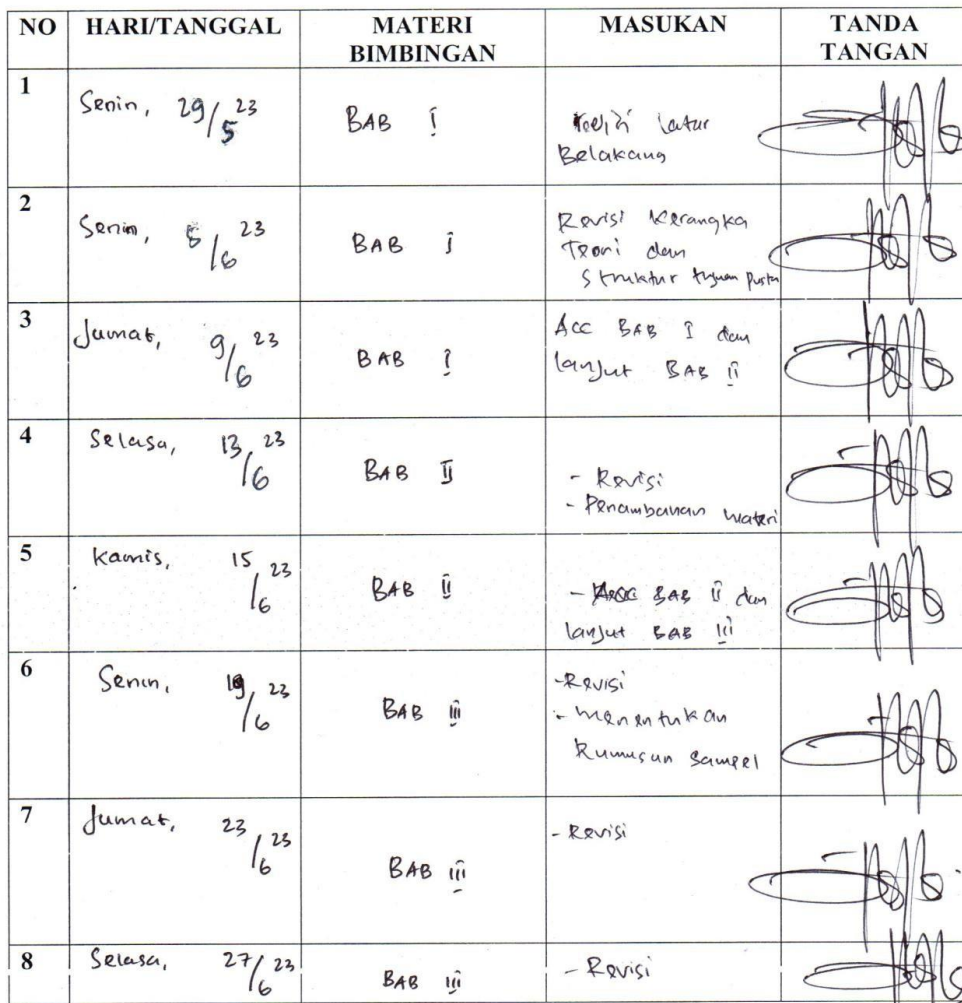 NO HARI/TANGGAL MATERI BIMBINGAN MASUKAN TANDA TANGAN
1 Senin, 29/5 23 BAB I Revisi Latar
Belakang
2 Senin, 5/6 23 BAB I Revisi Kerangka
Teori dan
Struktur
3 Jumat, 9/6 23 BAB I Acc BAB I dan
lanjut BAB II
4 Selasa, 13/6 23 BAB II - Revisi
- Penambahan materi
5 Kamis, 15/6 23 BAB II - Acc BAB II dan
lanjut BAB III
6 Senin, 19/6 23 BAB III - Revisi
- menentukan
Rumusan Sampel
7 Jumat, 23/6 23 BAB III - Revisi
8 Selasa, 27/6 23 BAB III - Revisi